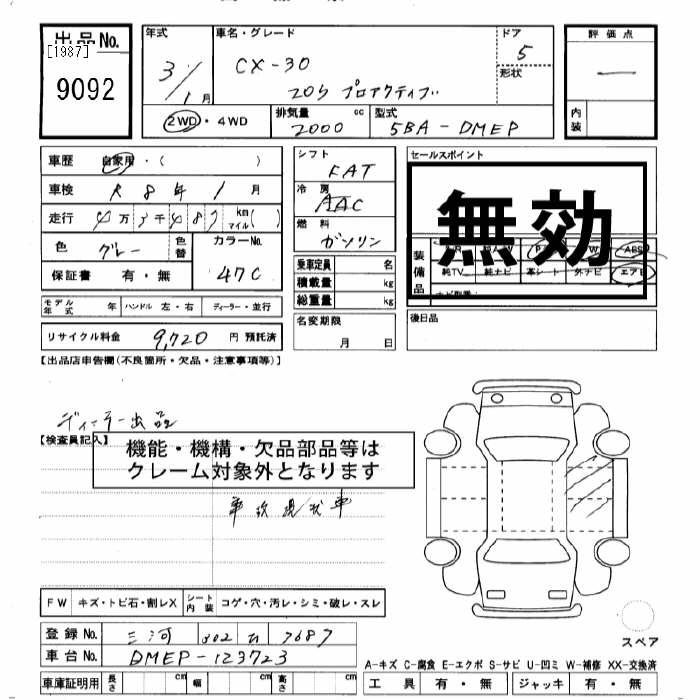 出品No.
[1987]
9092
年式
31/1月
車名・グレード
CX-30
20S プロアクティブ
ドア
5
形状
評価点
―
内装
2WD・4WD
排気量 2000 cc
型式 5BA-DMEP
車歴 自家用・( )
車検 R8年1月
走行 4万3千487 km マイル( )
色 グレー
色替
カラーNo. 47C
保証書 有・無
シフト FAT
冷房 AAC
燃料 ガソリン
乗車定員 名
積載量 kg
総重量 kg
セールスポイント
無効
装備品
純TV 純ナビ 本シート 外ナビ エアB
ABS
モデル年式 年 ハンドル 左・右 ディーラー・並行
リサイクル料金 9,720 円 預託済
名変期限
月 日
後日品
【出品店申告欄(不良箇所・欠品・注意事項等)】
ディーラー出品
【検査員記入】
機能・機構・欠品部品等は
クレーム対象外となります
事故現状車
FW キズ・トビ石・割レX
シート内装 コゲ・穴・汚レ・シミ・破レ・スレ
登録No. 三河 302 7687
車台No. DMEP-123723
車庫証明用 長さ cm 幅 cm 高さ cm
スペア
A-キズ C-腐食 E-エクボ S-サビ U-凹ミ W-補修 XX-交換済
工具 有・無 ジャッキ 有・無